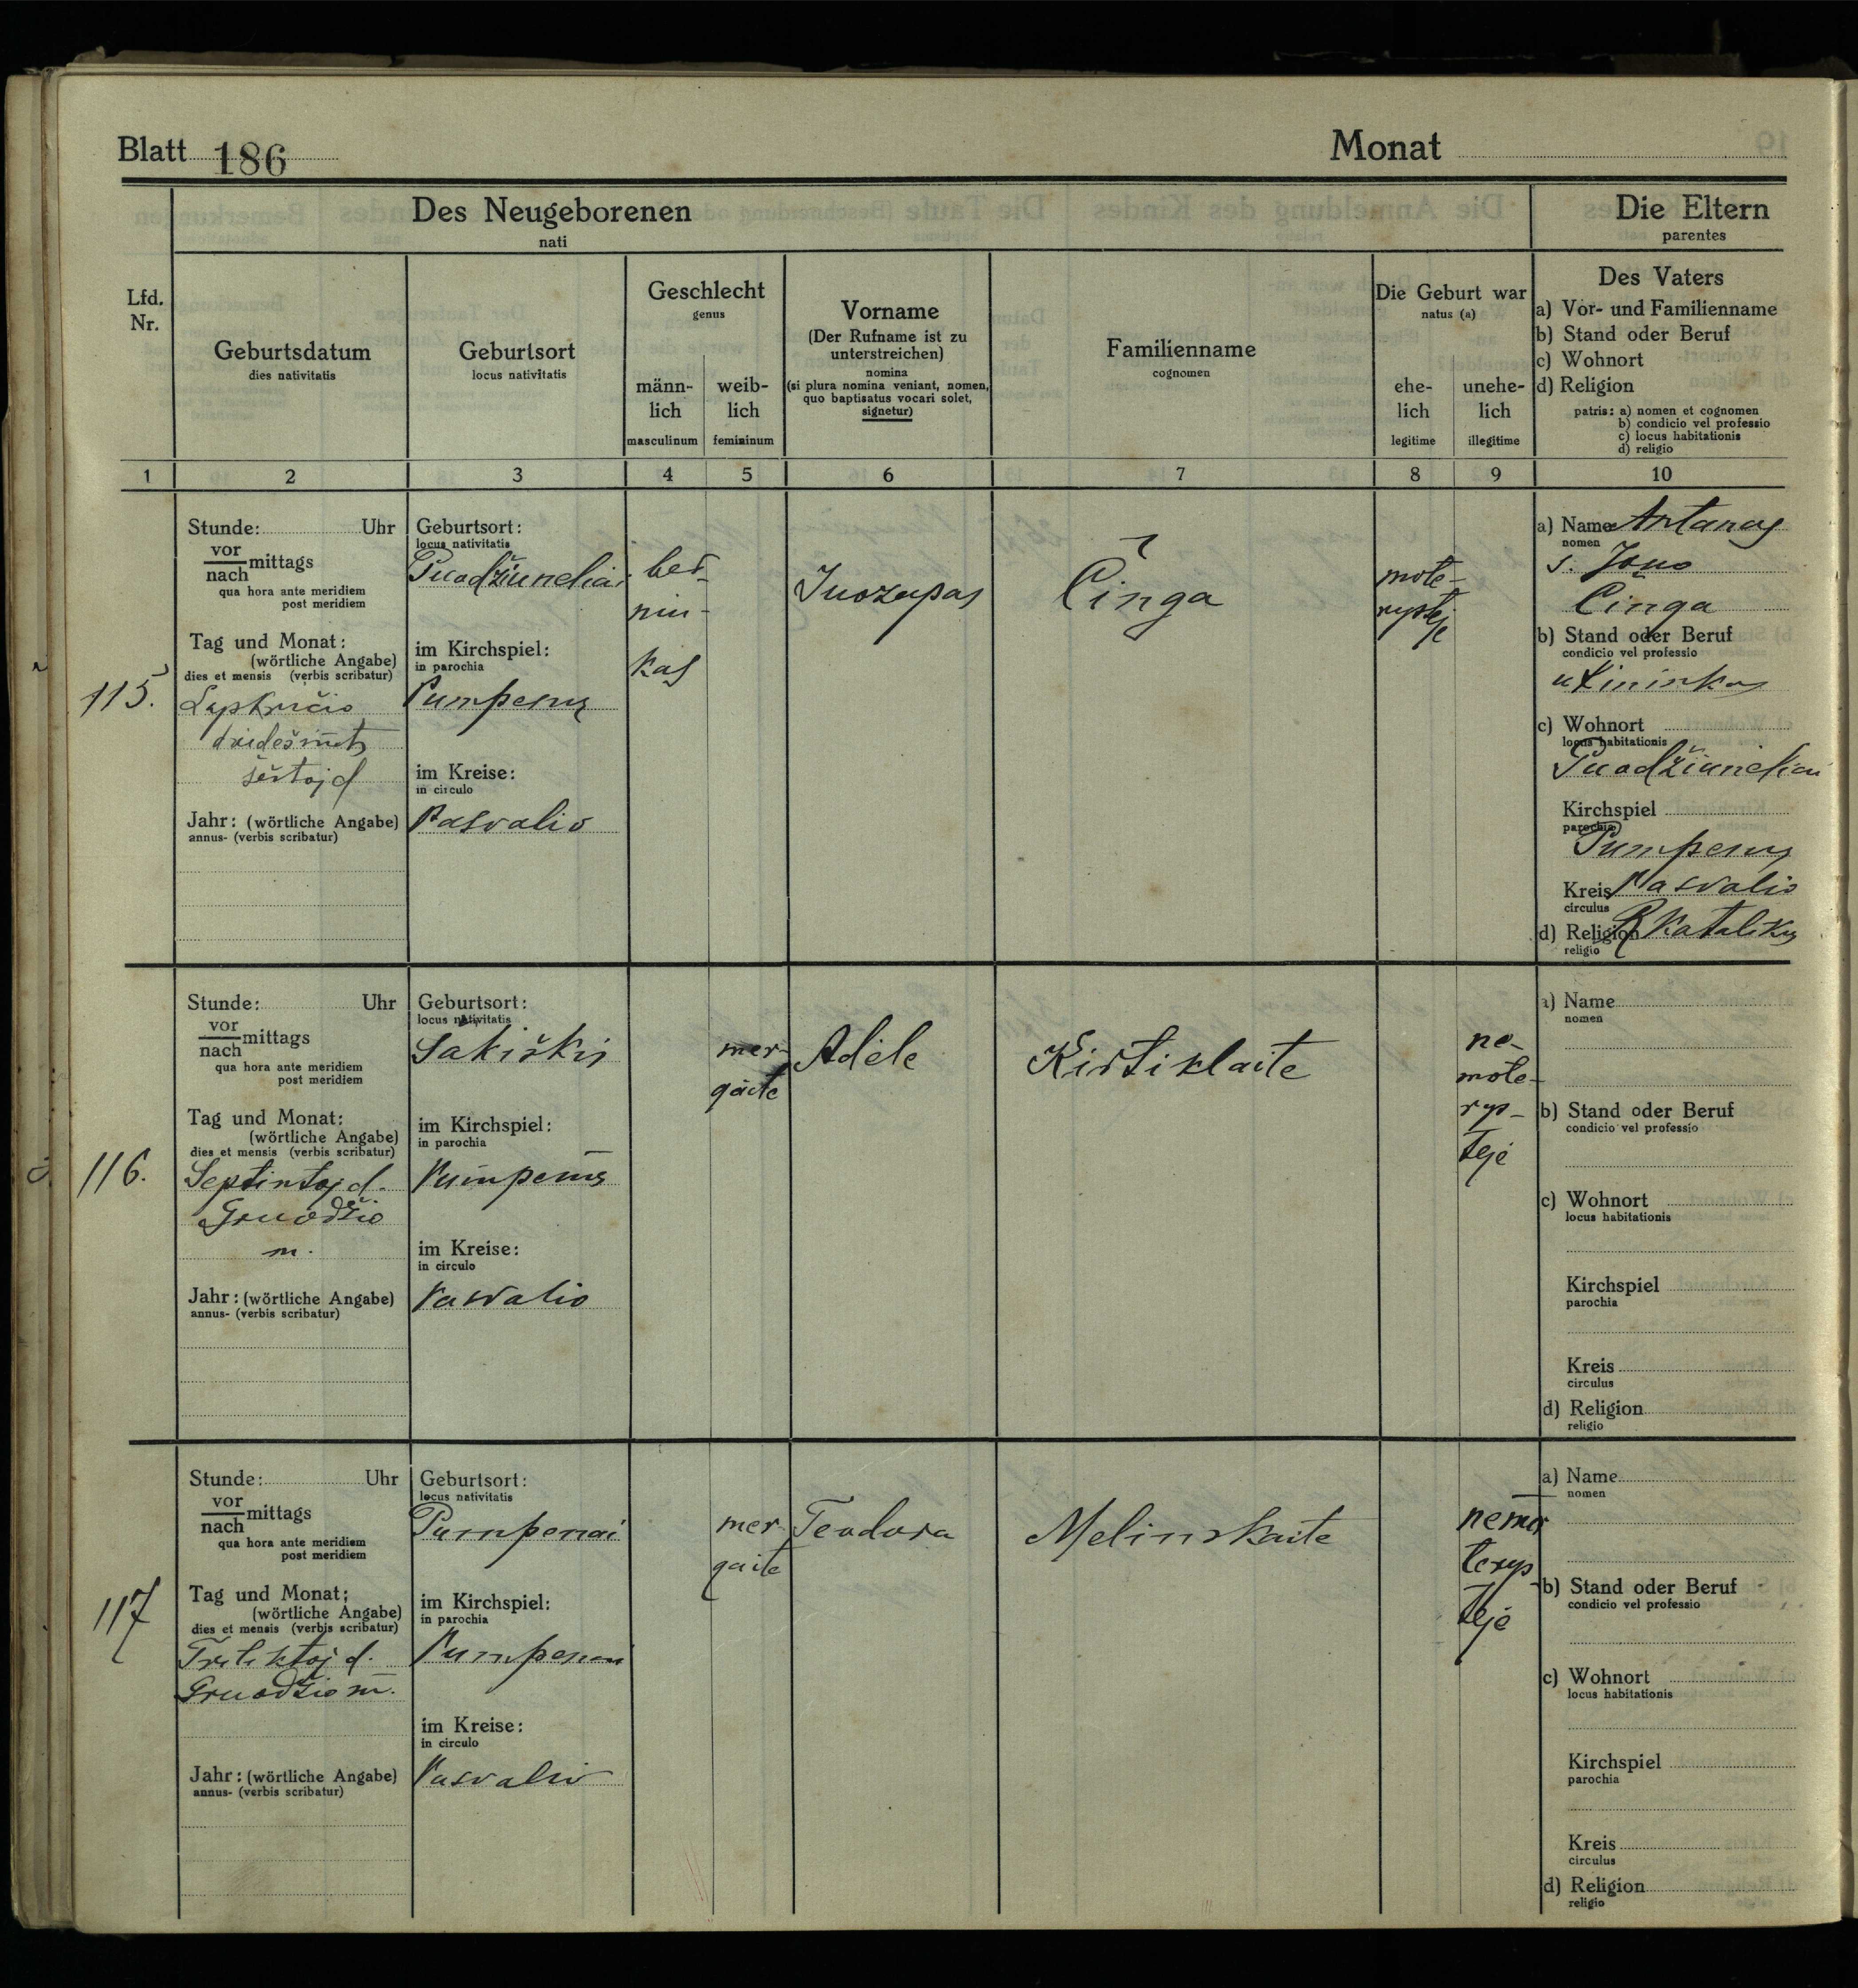 Blatt 186
Monat
Des Neugeborenen
nati
Die Eltern
parentes
Lfd.
Nr.
Geburtsdatum
dies nativitatis
Geburtsort
locus nativitatis
Geschlecht
genus
männ-
lich
masculinum
weib-
lich
femininum
Vorname
(Der Rufname ist zu
unterstreichen)
nomina
(si plura nomina veniant, nomen,
quo baptisatus vocari solet,
signetur)
Familienname
cognomen
Die Geburt war
natus (a)
ehe-
lich
legitime
unehe-
lich
illegitime
Des Vaters
a) Vor- und Familienname
b) Stand oder Beruf
c) Wohnort
d) Religion
patris: a) nomen et cognomen
b) condicio vel professio
c) locus habitationis
d) religio
1 2 3 4 5 6 7 8 9 10
115.
Stunde: Uhr
vor
nach mittags
qua hora ante meridiem
post meridiem
Tag und Monat:
(wörtliche Angabe)
dies et mensis (verbis scribatur)
dvidešimt
šeštoj d
Jahr: (wörtliche Angabe)
annus- (verbis scribatur)
Geburtsort:
locus nativitatis
Puodžiuneliai
im Kirchspiel:
in parochia
Pumpenų
im Kreise:
in circulo
Pasvalio
ber-
nin-
kas
Juozapas
Činga
mote-
rystėje
a) Name Antanas
nomen
s. Jono
Činga
b) Stand oder Beruf
condicio vel professio
ukininkas
c) Wohnort
locus habitationis
Puodžiuneliai
Kirchspiel
parochia
Pumpenų
Kreis Pasvalio
circulus
d) Religion R Katalikų
religio
116.
Stunde: Uhr
vor
nach mittags
qua hora ante meridiem
post meridiem
Tag und Monat:
(wörtliche Angabe)
dies et mensis (verbis scribatur)
Septintoj d.
Gruodžio
m.
Jahr: (wörtliche Angabe)
annus- (verbis scribatur)
Geburtsort:
locus nativitatis
im Kirchspiel:
in parochia
Pumpenų
im Kreise:
in circulo
Pasvalio
mer-
gaite
Adėlė
Kirtiklaite
ne-
mote-
rys-
teje
a) Name
nomen
b) Stand oder Beruf
condicio vel professio
c) Wohnort
locus habitationis
Kirchspiel
parochia
Kreis
circulus
d) Religion
religio
117
Stunde: Uhr
vor
nach mittags
qua hora ante meridiem
post meridiem
Tag und Monat:
(wörtliche Angabe)
dies et mensis (verbis scribatur)
Gruodžio m.
Jahr: (wörtliche Angabe)
annus- (verbis scribatur)
Geburtsort:
locus nativitatis
Pumpenai
im Kirchspiel:
in parochia
Pumpenų
im Kreise:
in circulo
Pasvalio
mer
gaite
Teodora
Melinskaite
nemo
terys
teje
a) Name
nomen
b) Stand oder Beruf
condicio vel professio
c) Wohnort
locus habitationis
Kirchspiel
parochia
Kreis
circulus
d) Religion
religio